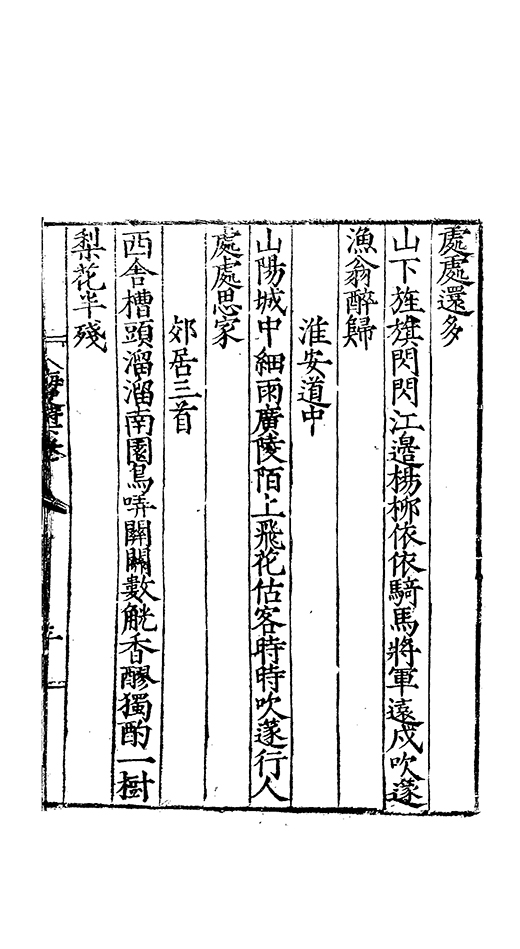 處處還多
山下旌旗閃閃江邊楊柳依依騎馬將軍遠戍吹蓫
漁翁醉歸
淮安道中
山陽城中細雨廣陵陌上飛花估客時時吹蓫行人
處處思家
郊居三首
西舍槽頭溜溜南園鳥哢關關數觥香醪獨酌一樹
梨花半殘